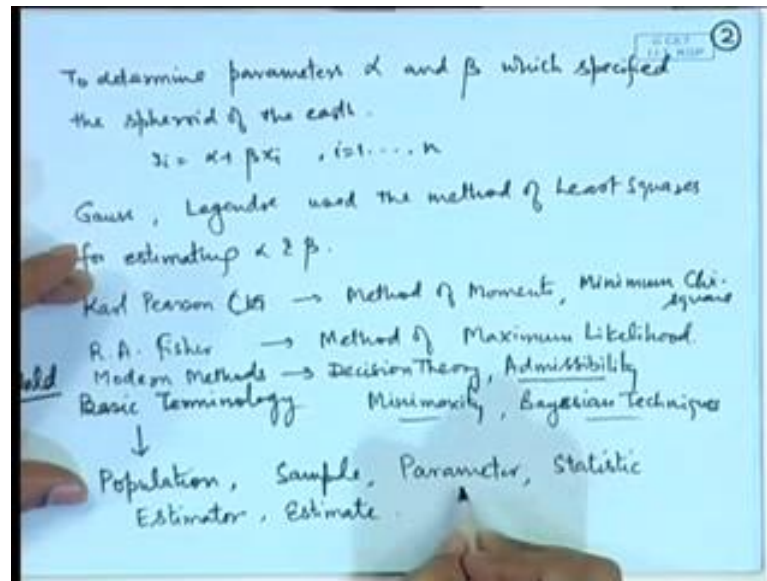 ②
To determine parameters α and β which specified
the spheroid of the earth.
zi = α + βxi , i=1....,n
Gauss, Legendre used the method of Least Squares
for estimating α & β.
Karl Pearson → Method of Moments, Minimum Chi-
square
R.A. Fisher → Method of Maximum Likelihood.
Modern Methods → Decision Theory, Admissibility
Basic Terminology Minimaxity, Bayesian Techniques
↓
Population, Sample, Parameter, Statistic
Estimator, Estimate.